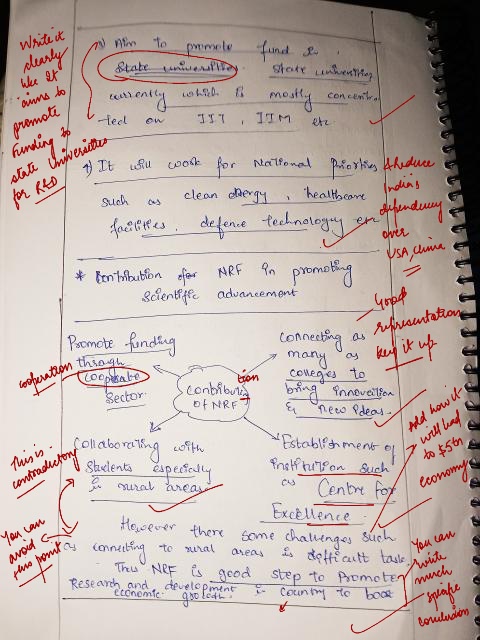 3) Aim to promote fund &
State universities. State universities
currently which is mostly concentra
-ted on IIT, IIM etc
Write it
clearly
like It
aims to
promote
Funding to
state universities
for R&D
4) It will work for National Priorities
such as clean energy, healthcare
facilities, defence technology etc
& Reduce
India's
dependency
over
USA, China
* Contribution of NRF in promoting
scientific advancement
Good
representation
keep it up
Promote funding
through
cooperate
sector.
cooperation
Connecting as
many as
colleges to
bring innovation
& New ideas.
Contribution
of NRF
Collaborating with
students especially
in rural areas
This is
contradictory
Establishment of
institution such
as Centre for
Excellence
Add how it
will lead
to $5tn
economy
However there some challenges such
as connecting to rural areas is difficult task.
Thus NRF is good step to Promote
Research and development in country to boost
economic growth.
You can
avoid
this point
You can
write
much
specific
conclusion